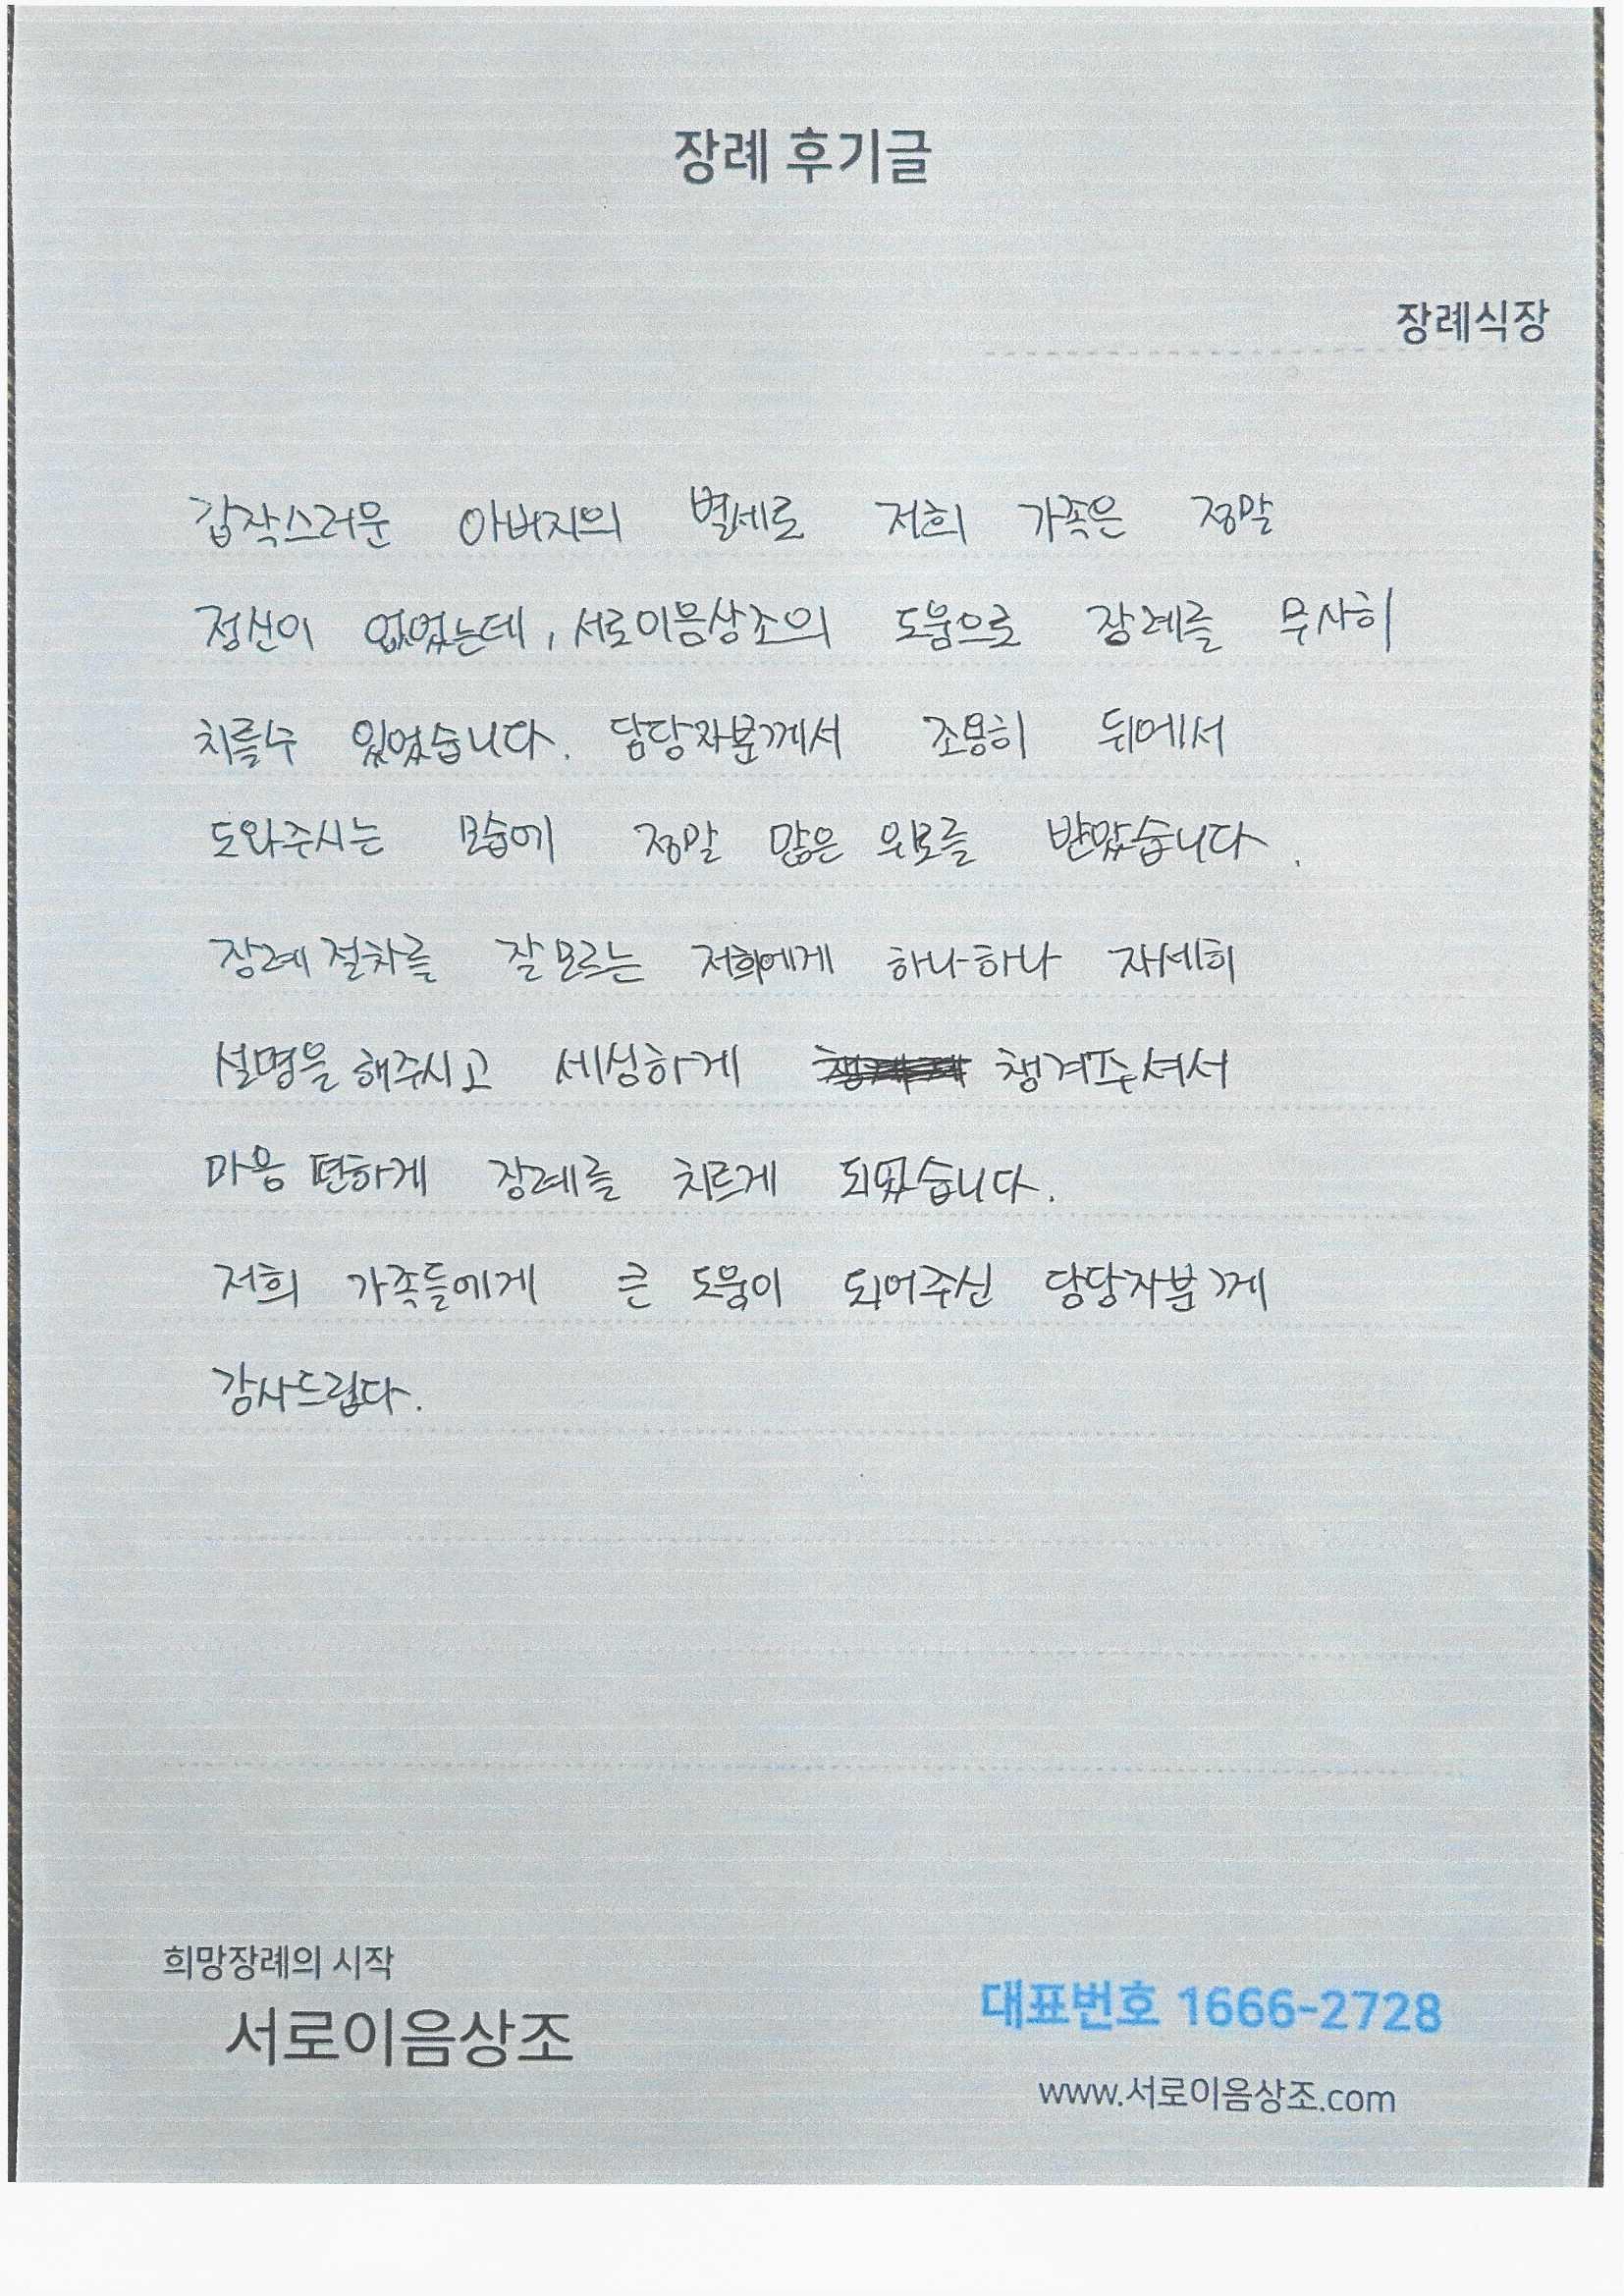 장례 후기글
장례식장
갑작스러운 아버지의 별세로 저희 가족은 정말
정신이 없었는데, 서로이음상조의 도움으로 장례를 무사히
치를수 있었습니다. 담당자분께서 조용히 뒤에서
도와주시는 모습에 정말 많은 위로를 받았습니다.
장례 절차를 잘 모르는 저희에게 하나하나 자세히
설명을 해주시고 세심하게 챙겨주셔서
마음 편하게 장례를 치르게 되었습니다.
저희 가족들에게 큰 도움이 되어주신 담당자분께
감사드립다.
희망장례의 시작
서로이음상조
대표번호 1666-2728
www.서로이음상조.com